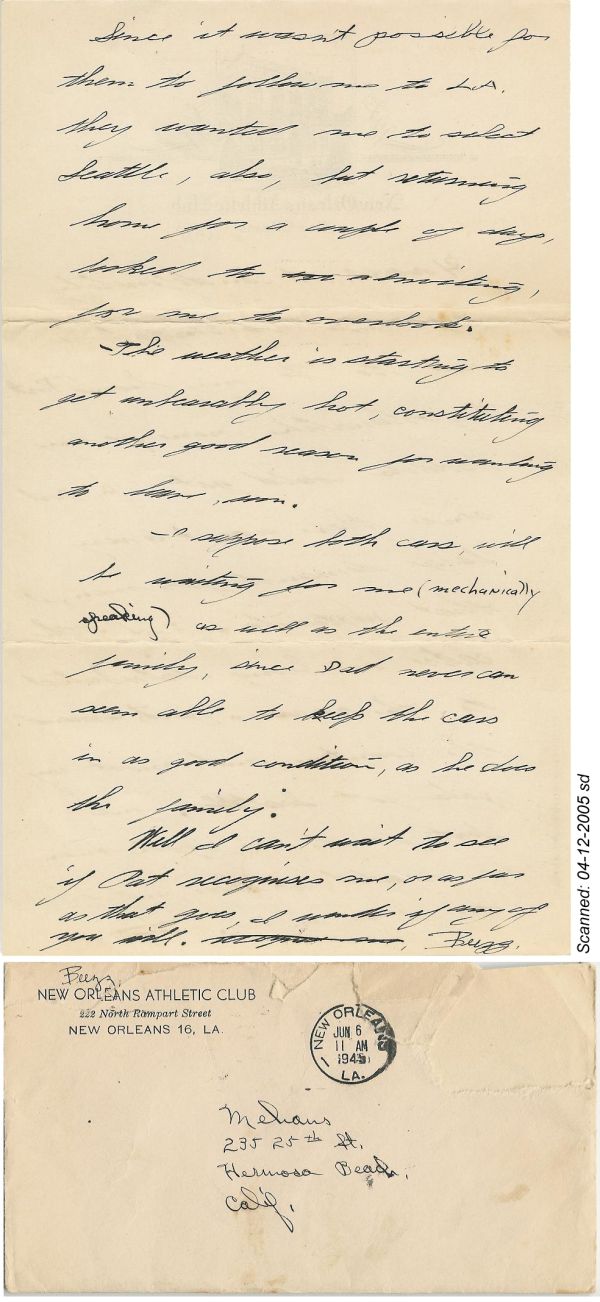 Since it wasn't possible for
them to follow me to L.A.
they wanted me to select
Seattle, also, but returning
home for a couple of days,
looked to inviting,
for me to overlook.
- The weather is starting to
get unbearably hot, constituting
another good reason for wanting
to leave, soon.
- I suppose both cars, will
be waiting for me (mechanically
speaking) as well as the entire
family, since Dad never can
seem able to keep the cars
in as good condition, as he does
the family.
Well I can't wait to see
if Pat recognises me, or as far
as that goes, I wonder if any of
you will. Beezz.
Scanned: 04-12-2005 sd
Beezz.
NEW ORLEANS ATHLETIC CLUB
222 North Rampart Street
NEW ORLEANS 16, LA.
NEW ORLEANS
JUN 6
11 AM
1945
LA.
1
Mehans
235 25th St.
Hermosa Beach,
Calif.